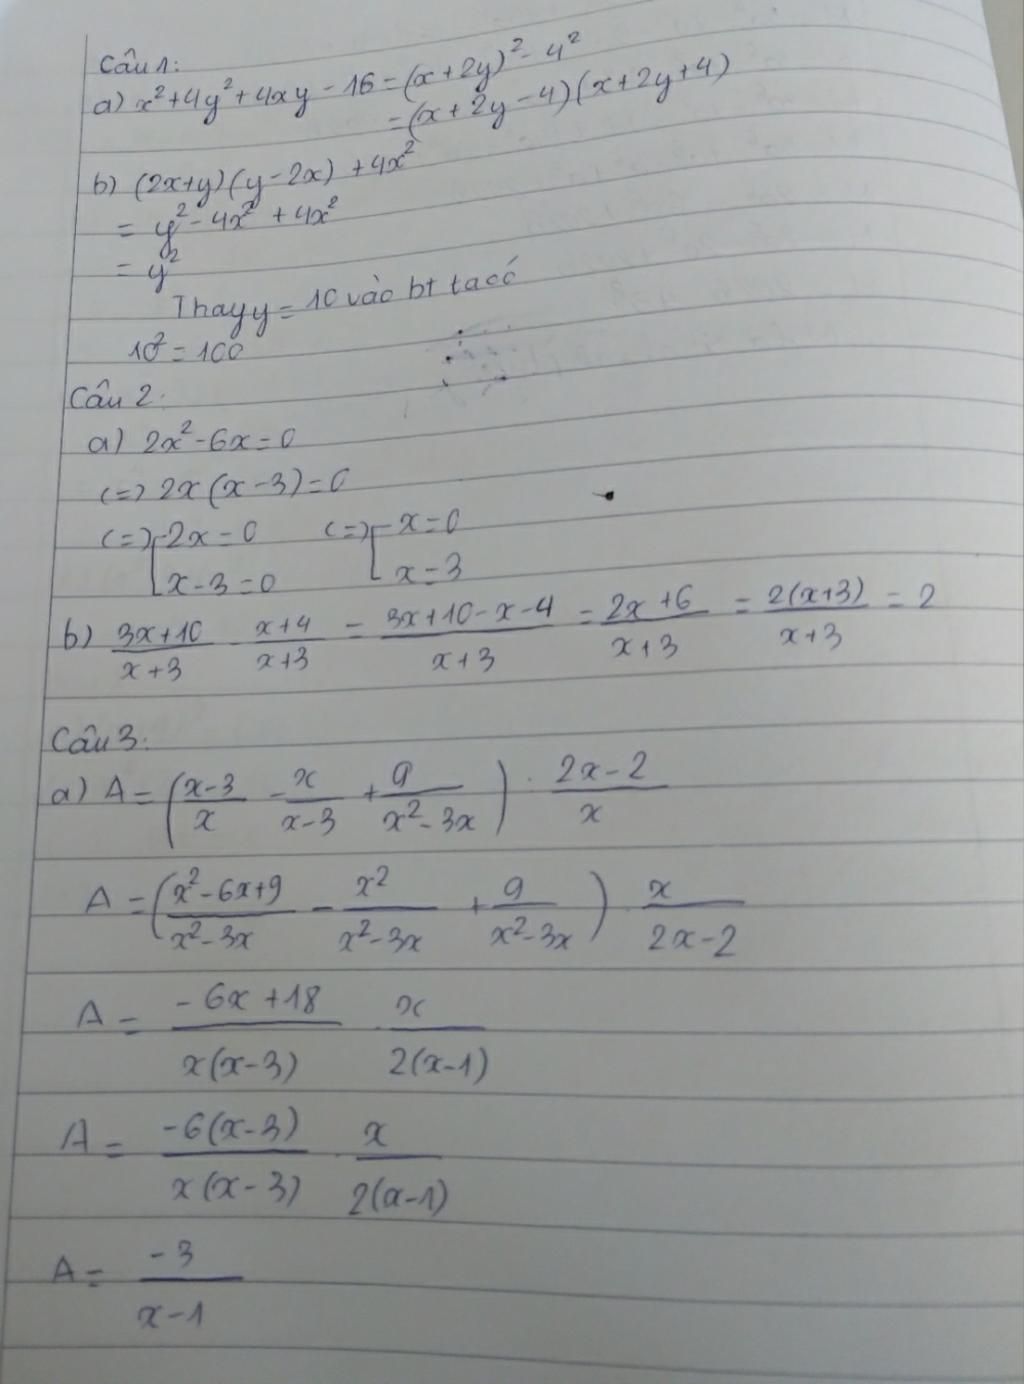 Câu 1:
a) x²+4y²+4xy-16=(x+2y)²-4²
=(x+2y-4)(x+2y+4)
b) (2x+y)(y-2x)+4x²
= y²-4x²+4x²
= y²
Thay y=10 vào bt ta có
10²=100
Câu 2:
a) 2x²-6x=0
(=) 2x(x-3)=0
(=) [2x=0 (=) [x=0
[x-3=0 [x=3
b) (3x+10)/(x+3) - (x+4)/(x+3) = (3x+10-x-4)/(x+3) = (2x+6)/(x+3) = 2(x+3)/(x+3) = 2
Câu 3:
a) A=((x-3)/x - x/(x-3) + 9/(x²-3x)) : (2x-2)/x
A=((x²-6x+9)/(x²-3x) - x²/(x²-3x) + 9/(x²-3x)) . x/(2x-2)
A= (-6x+18)/(x(x-3)) . x/(2(x-1))
A= (-6(x-3))/(x(x-3)) . x/(2(x-1))
A= -3/(x-1)